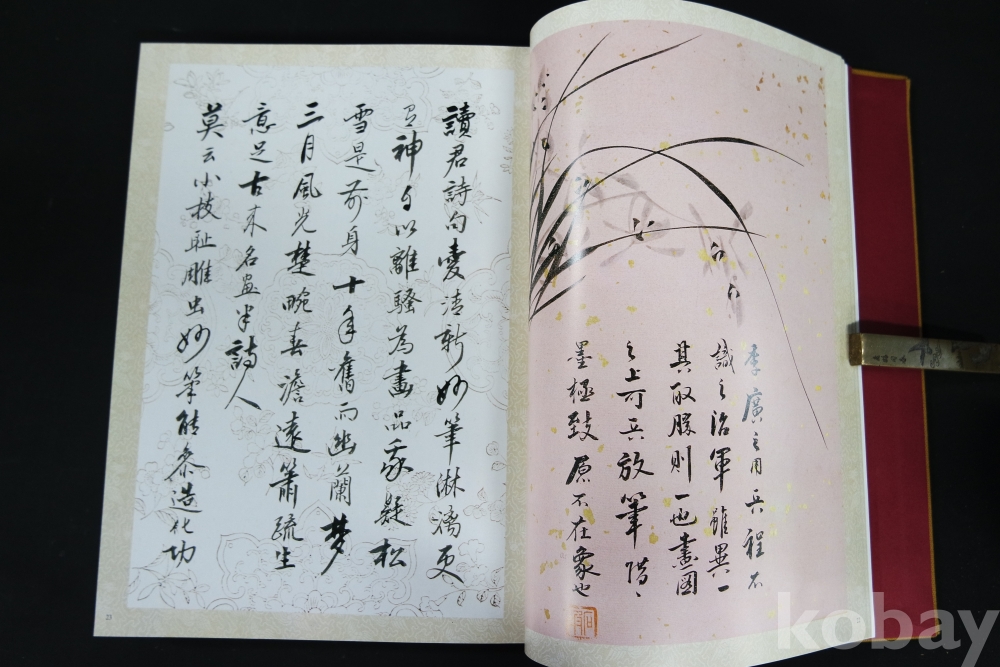 李廣之用兵程不
識之治軍雖異
其取勝則一也畫圖
之上可兵放筆
墨極致原不在象也
讀君詩句愛清新妙筆淋漓更
有神自以離騷為畫品我疑松
雪是前身十年舊雨幽蘭夢
三月風光楚畹春澹遠簫疏生
意足古來名畫半詩人
莫云小技恥雕虫妙筆能參造化功
23
kobay